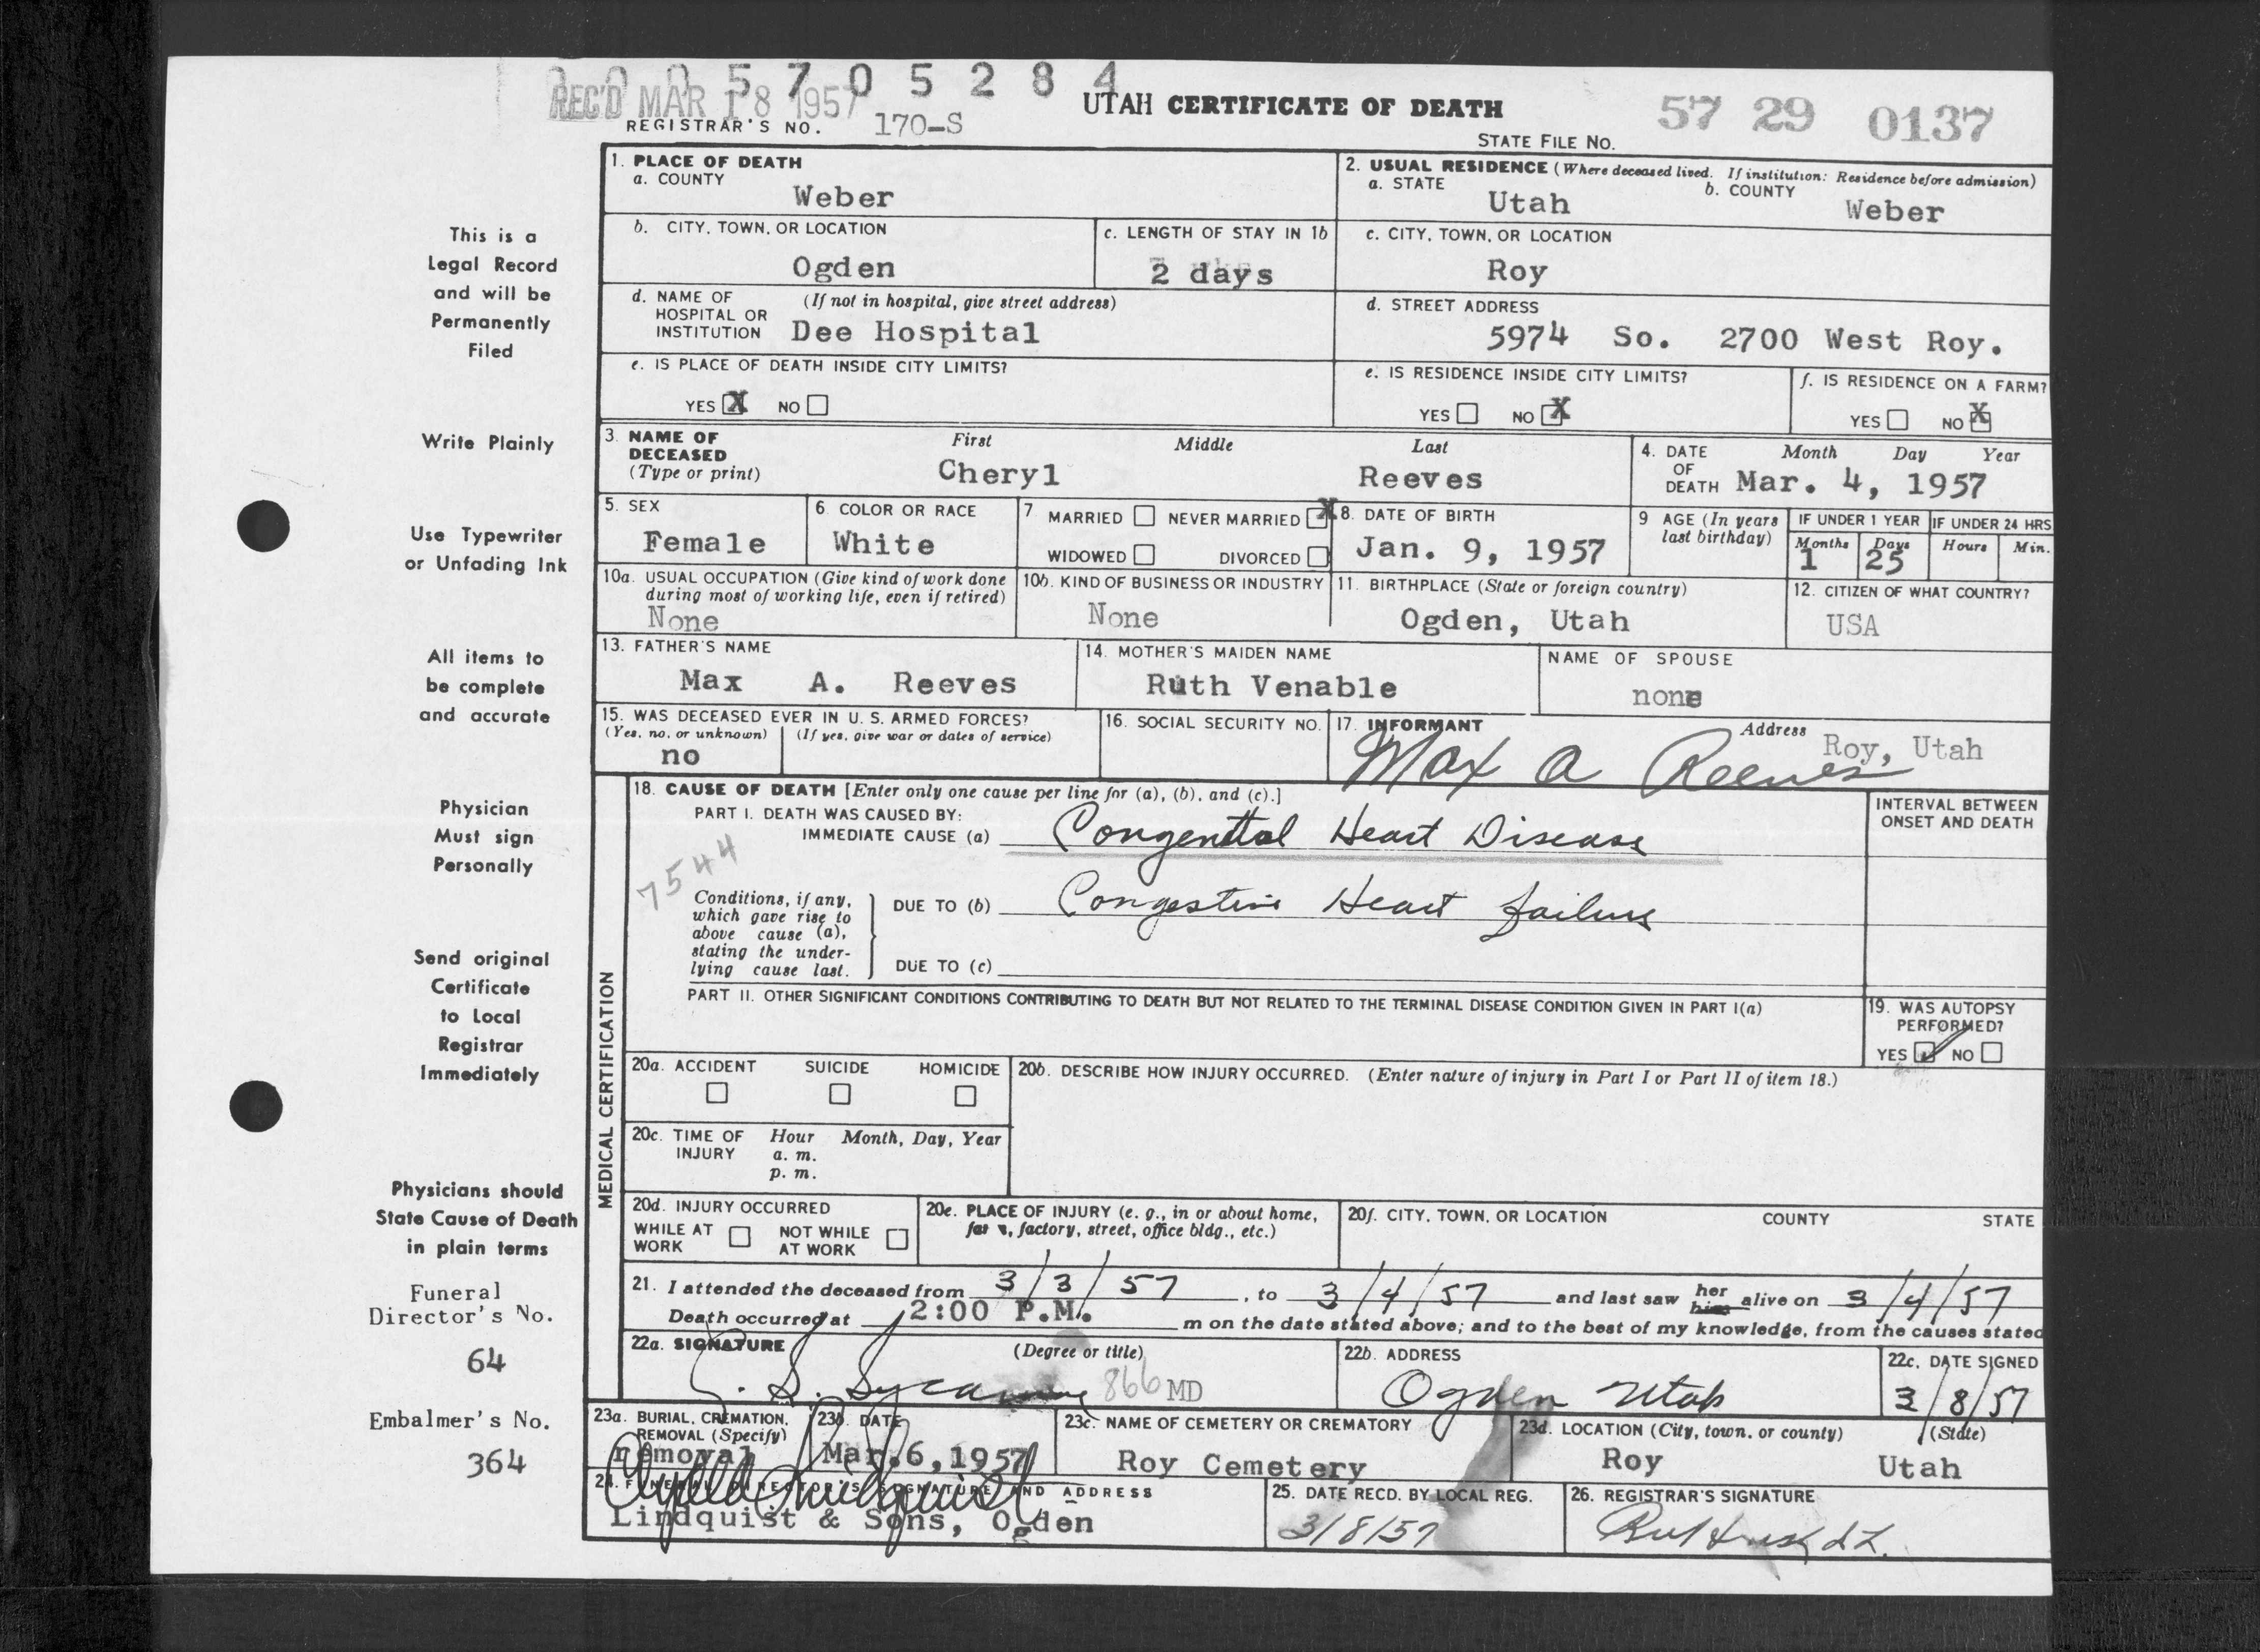 0 0 0 5 7 0 5 2 8 4
REC'D MAR 18 1957
UTAH CERTIFICATE OF DEATH
57 29 0137
REGISTRAR'S NO. 170-S
STATE FILE NO.
This is a
Legal Record
and will be
Permanently
Filed
Write Plainly
Use Typewriter
or Unfading Ink
All items to
be complete
and accurate
Physician
Must sign
Personally
Send original
Certificate
to Local
Registrar
Immediately
Physicians should
State Cause of Death
in plain terms
Funeral
Director's No.
64
Embalmer's No.
364
1. PLACE OF DEATH
a. COUNTY
Weber
2. USUAL RESIDENCE (Where deceased lived. If institution: Residence before admission)
a. STATE
Utah
b. COUNTY
Weber
b. CITY, TOWN, OR LOCATION
Ogden
c. LENGTH OF STAY IN 1b
2 days
c. CITY, TOWN, OR LOCATION
Roy
d. NAME OF HOSPITAL OR INSTITUTION
(If not in hospital, give street address)
Dee Hospital
d. STREET ADDRESS
5974 So. 2700 West Roy.
e. IS PLACE OF DEATH INSIDE CITY LIMITS?
YES X NO
e. IS RESIDENCE INSIDE CITY LIMITS?
YES NO X
f. IS RESIDENCE ON A FARM?
YES NO X
3. NAME OF DECEASED
(Type or print)
First Middle Last
Cheryl Reeves
4. DATE OF DEATH
Month Day Year
Mar. 4, 1957
5. SEX
Female
6. COLOR OR RACE
White
7 MARRIED NEVER MARRIED X
WIDOWED DIVORCED
8. DATE OF BIRTH
Jan. 9, 1957
9 AGE (In years last birthday)
IF UNDER 1 YEAR
Months Days
1 25
IF UNDER 24 HRS
Hours Min.
10a. USUAL OCCUPATION (Give kind of work done
during most of working life, even if retired)
None
10b. KIND OF BUSINESS OR INDUSTRY
None
11. BIRTHPLACE (State or foreign country)
Ogden, Utah
12. CITIZEN OF WHAT COUNTRY?
USA
13. FATHER'S NAME
Max A. Reeves
14. MOTHER'S MAIDEN NAME
Ruth Venable
NAME OF SPOUSE
none
15. WAS DECEASED EVER IN U. S. ARMED FORCES?
(Yes, no, or unknown) (If yes, give war or dates of service)
no
16. SOCIAL SECURITY NO.
17. INFORMANT
Max A Reeves
Address
Roy, Utah
MEDICAL CERTIFICATION
18. CAUSE OF DEATH [Enter only one cause per line for (a), (b), and (c).]
PART I. DEATH WAS CAUSED BY:
IMMEDIATE CAUSE (a) Congenital Heart Disease
7544
Conditions, if any,
which gave rise to
above cause (a),
stating the under-
lying cause last.
DUE TO (b) Congestive Heart failure
DUE TO (c)
INTERVAL BETWEEN
ONSET AND DEATH
PART II. OTHER SIGNIFICANT CONDITIONS CONTRIBUTING TO DEATH BUT NOT RELATED TO THE TERMINAL DISEASE CONDITION GIVEN IN PART I(a)
19. WAS AUTOPSY
PERFORMED?
YES ✓ NO
20a. ACCIDENT SUICIDE HOMICIDE
20b. DESCRIBE HOW INJURY OCCURRED. (Enter nature of injury in Part I or Part II of item 18.)
20c. TIME OF INJURY
Hour Month, Day, Year
a. m.
p. m.
20d. INJURY OCCURRED
WHILE AT WORK
NOT WHILE AT WORK
20e. PLACE OF INJURY (e. g., in or about home,
farm, factory, street, office bldg., etc.)
20f. CITY, TOWN, OR LOCATION COUNTY STATE
21. I attended the deceased from 3/3/57, to 3/4/57 and last saw her him alive on 3/4/57
Death occurred at 2:00 P.M. m on the date stated above; and to the best of my knowledge, from the causes stated
22a. SIGNATURE
(Degree or title)
866 MD
22b. ADDRESS
Ogden Utah
22c. DATE SIGNED
3/8/57
23a. BURIAL, CREMATION,
REMOVAL (Specify)
removal
23b. DATE
Mar.6,1957
23c. NAME OF CEMETERY OR CREMATORY
Roy Cemetery
23d. LOCATION (City, town, or county) (State)
Roy Utah
24. FUNERAL DIRECTOR'S SIGNATURE AND ADDRESS
Lindquist & Sons, Ogden
25. DATE RECD. BY LOCAL REG.
3/8/57
26. REGISTRAR'S SIGNATURE